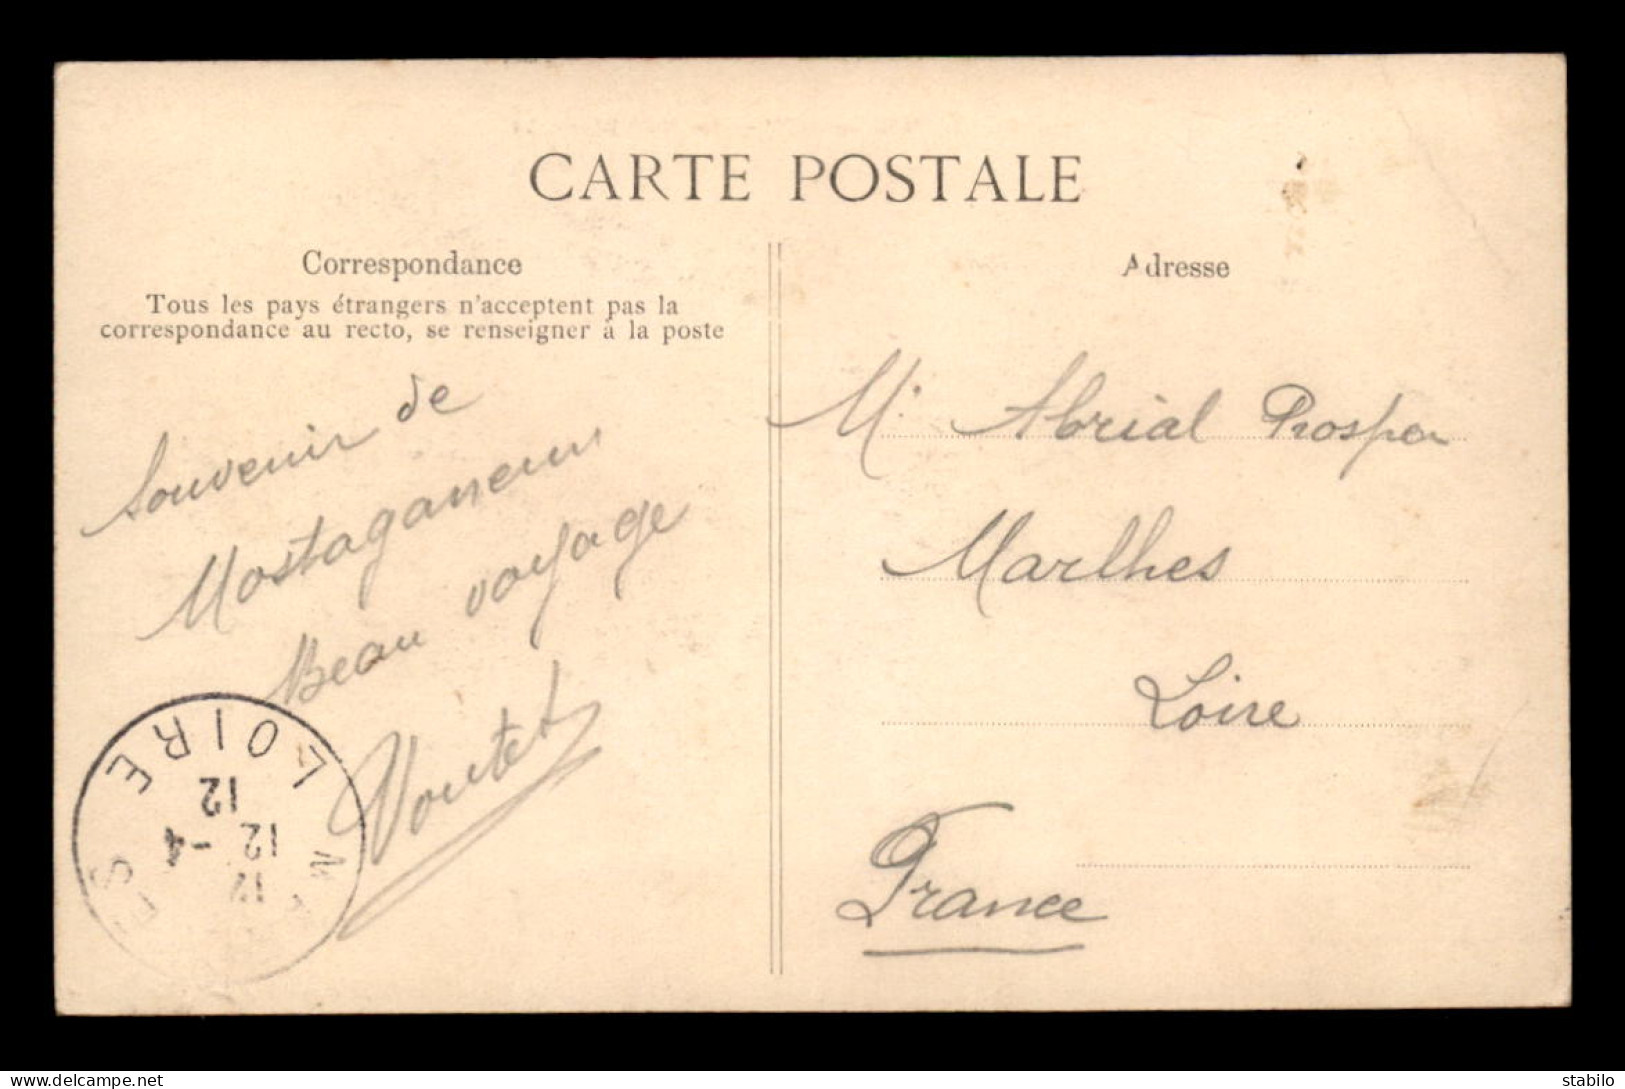 CARTE POSTALE
Correspondance
Tous les pays étrangers n'acceptent pas la
correspondance au recto, se renseigner à la poste
Souvenir de
Mostaganem
Beau voyage
Voutet
Adresse
Mr Abrial Prosper
Marlhes
Loire
France
LOIRE
12
12 -4
12
delcampe.net
stabilo